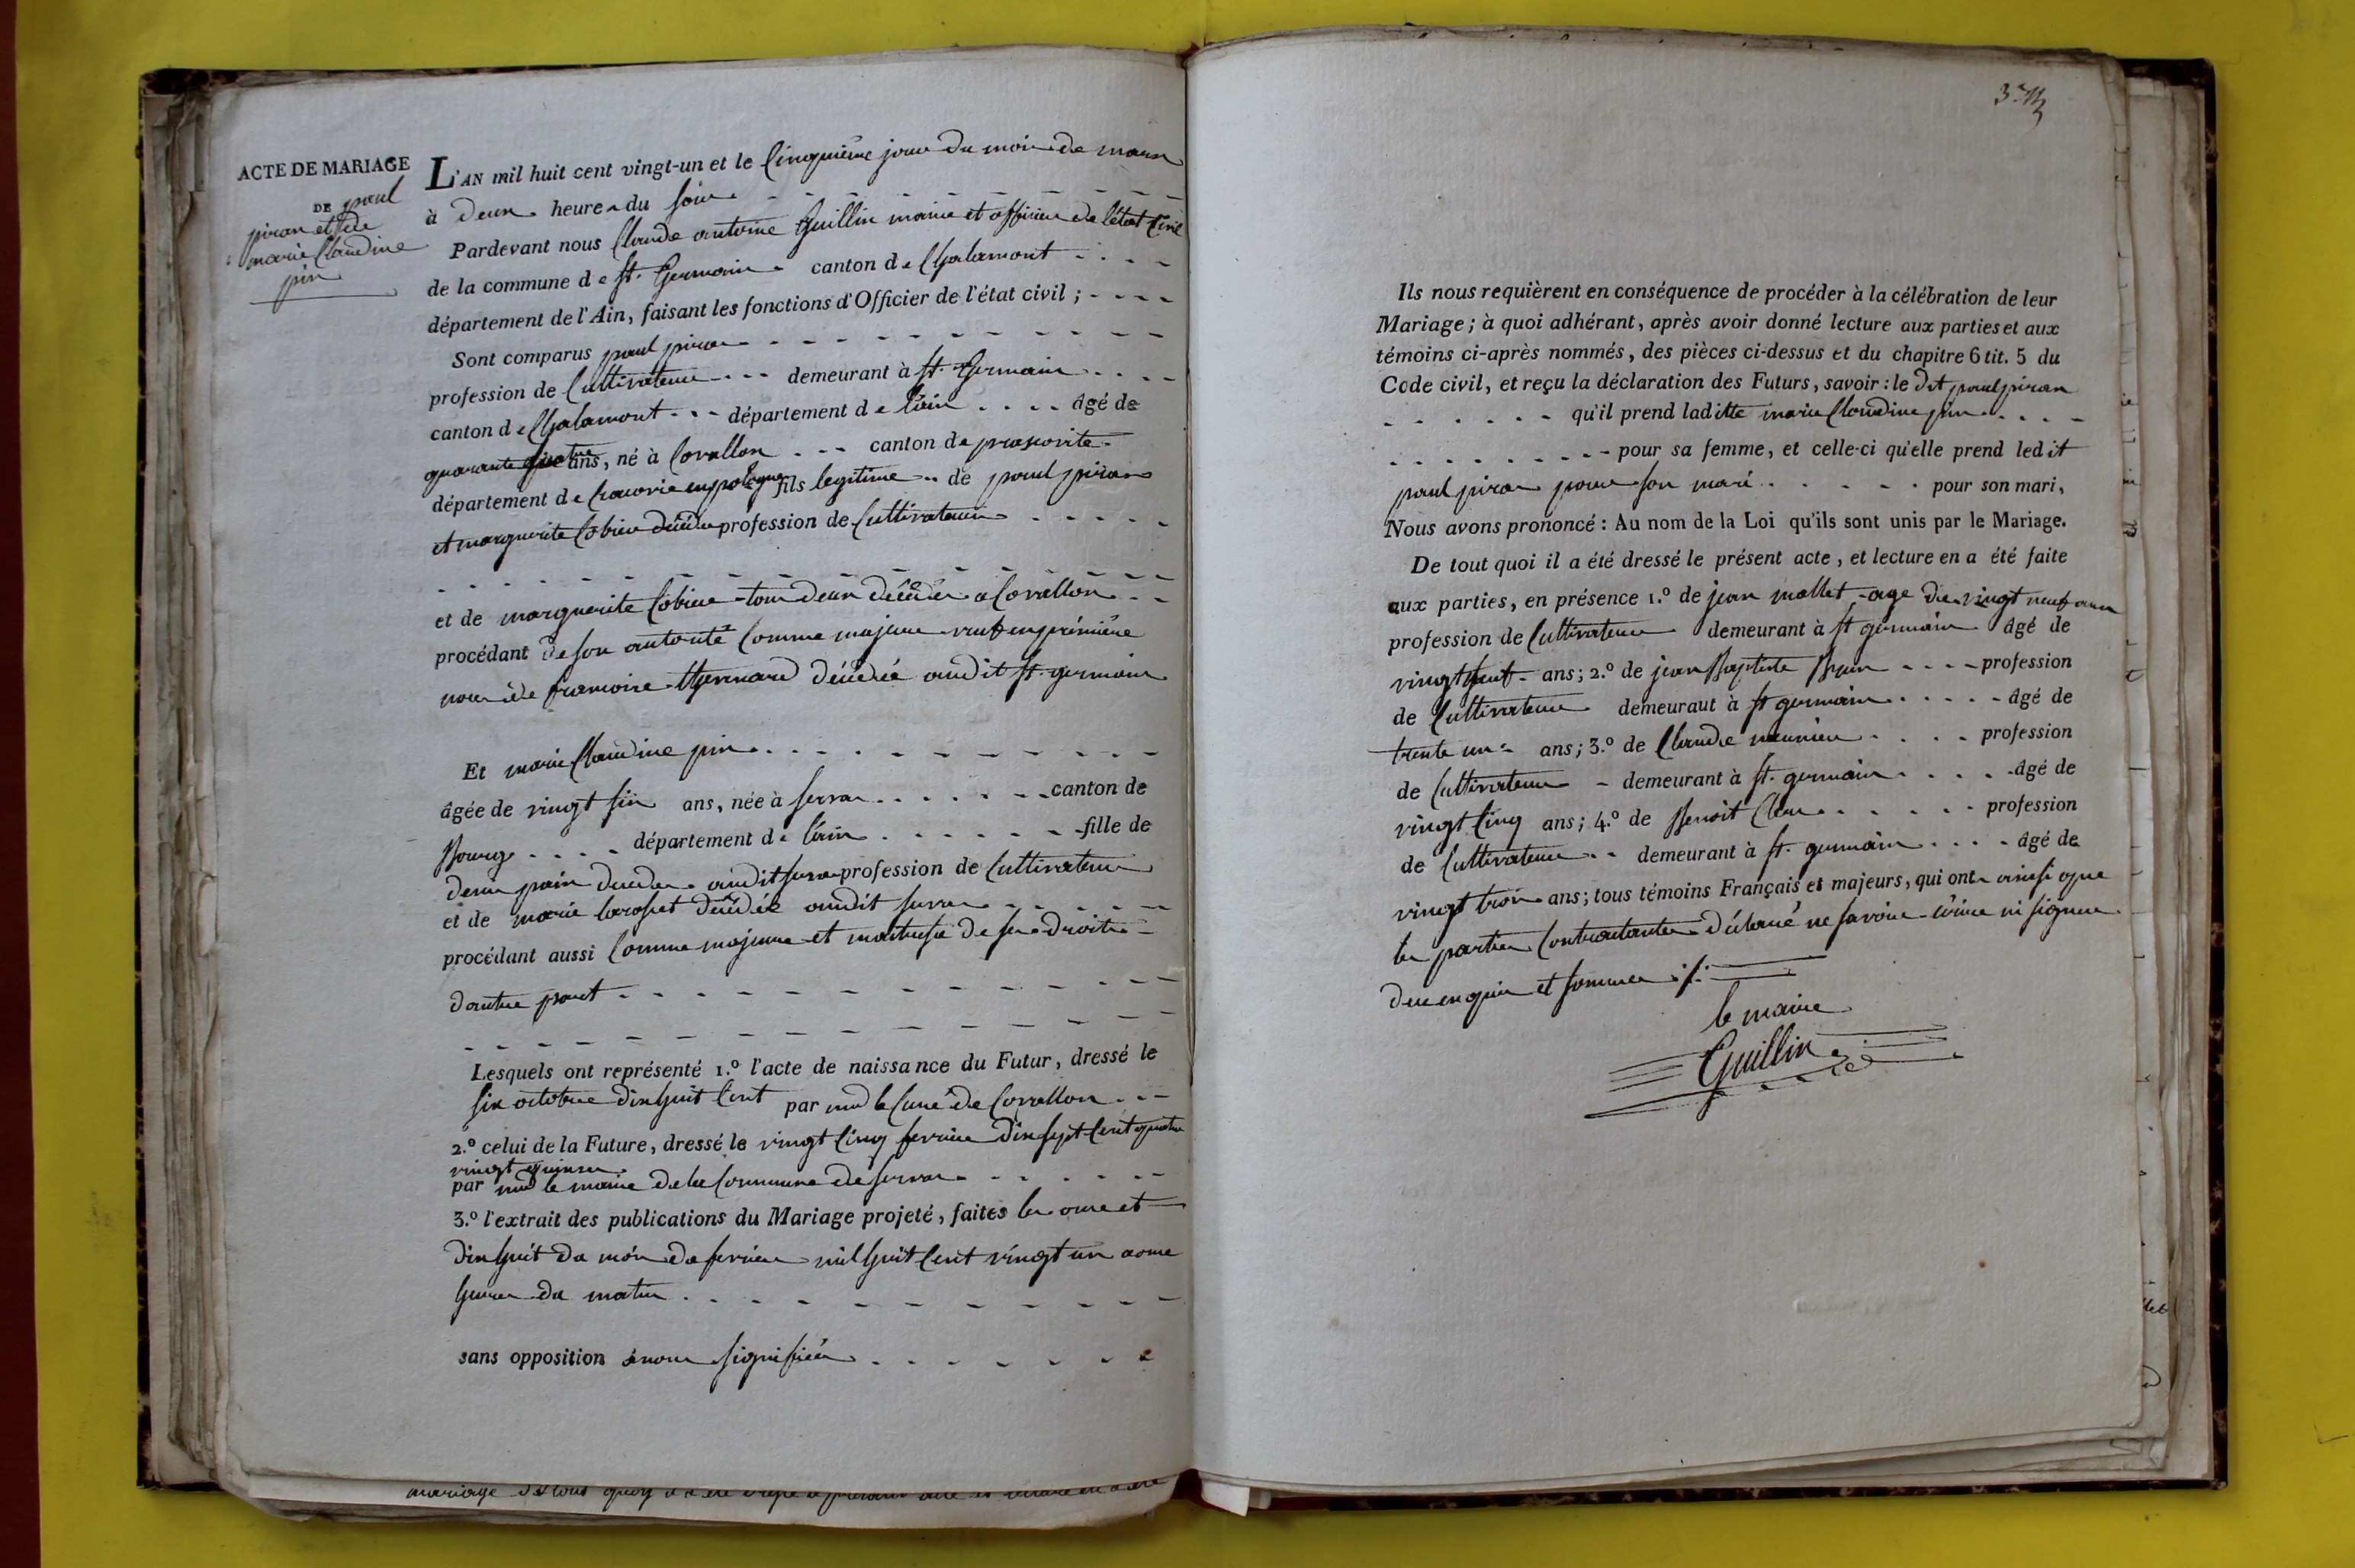 ACTE DE MARIAGE
DE paul
piran et de
marie Claudine
pin
L'AN mil huit cent vingt-un et le Cinquième jour du mois de mars
à deux heures du soir
Pardevant nous Claude antoine Guillin maire et officier de l'état Civil
de la commune de St. Germain canton de Chalamont
département de l'Ain, faisant les fonctions d'Officier de l'état civil ;
Sont comparus paul piran
profession de Cultivateur demeurant à St. Germain
canton de Chalamont département de l'ain âgé de
quarante ans, né à Corallon canton de
département de Cracovie en pologne fils legitime de paul piran
et marguerite Cobieu profession de Cultivateurs
et de marguerite Cobieu tous deux décédés a Corallon
procédant de son autorité Comme majeur veuf en première
noce de francoise décédée audit St. germain
Et marie Claudine pin
âgée de vingt six ans, née à servas canton de
Bourg département de l'ain fille de
denis décédé audit servas profession de Cultivateur
et de marie décédée audit servas
procédant aussi Comme majeure et maitresse de ses droits
dautre part
Lesquels ont représenté 1.º l'acte de naissance du Futur, dressé le
six octobre dix huit Cent par md le Curé de Corallon
2.º celui de la Future, dressé le vingt Cinq fevrier dix sept Cent quatre
vingt quinze
par md le maire de la Commune de servas
3.º l'extrait des publications du Mariage projeté, faites les onze et
dix huit du mois de fevrier mil huit Cent vingt un a onze
heures du matin
sans opposition à nous signifiée
Ils nous requièrent en conséquence de procéder à la célébration de leur
Mariage ; à quoi adhérant, après avoir donné lecture aux parties et aux
témoins ci-après nommés, des pièces ci-dessus et du chapitre 6 tit. 5 du
Code civil, et reçu la déclaration des Futurs, savoir : le dit paul piran
qu'il prend laditte marie Claudine pin
pour sa femme, et celle-ci qu'elle prend ledit
paul piran pour son mari pour son mari,
Nous avons prononcé : Au nom de la Loi qu'ils sont unis par le Mariage.
De tout quoi il a été dressé le présent acte, et lecture en a été faite
aux parties, en présence 1.º de jean mallet age de vingt neuf ans
profession de Cultivateur demeurant à St germain âgé de
vingt ans ; 2.º de jean Baptiste profession
de Cultivateur demeuraut à St germain âgé de
trente un ans ; 3.º de Claude meunier profession
de Cultivateur demeurant à St. germain âgé de
vingt Cinq ans ; 4.º de Benoit profession
de Cultivateur demeurant à St. germain âgé de
vingt trois ans ; tous témoins Français et majeurs, qui ont ainsi que
les parties Contractantes déclaré ne savoir écrire ni signer
de ce enquis et sommés
le maire
Guillin